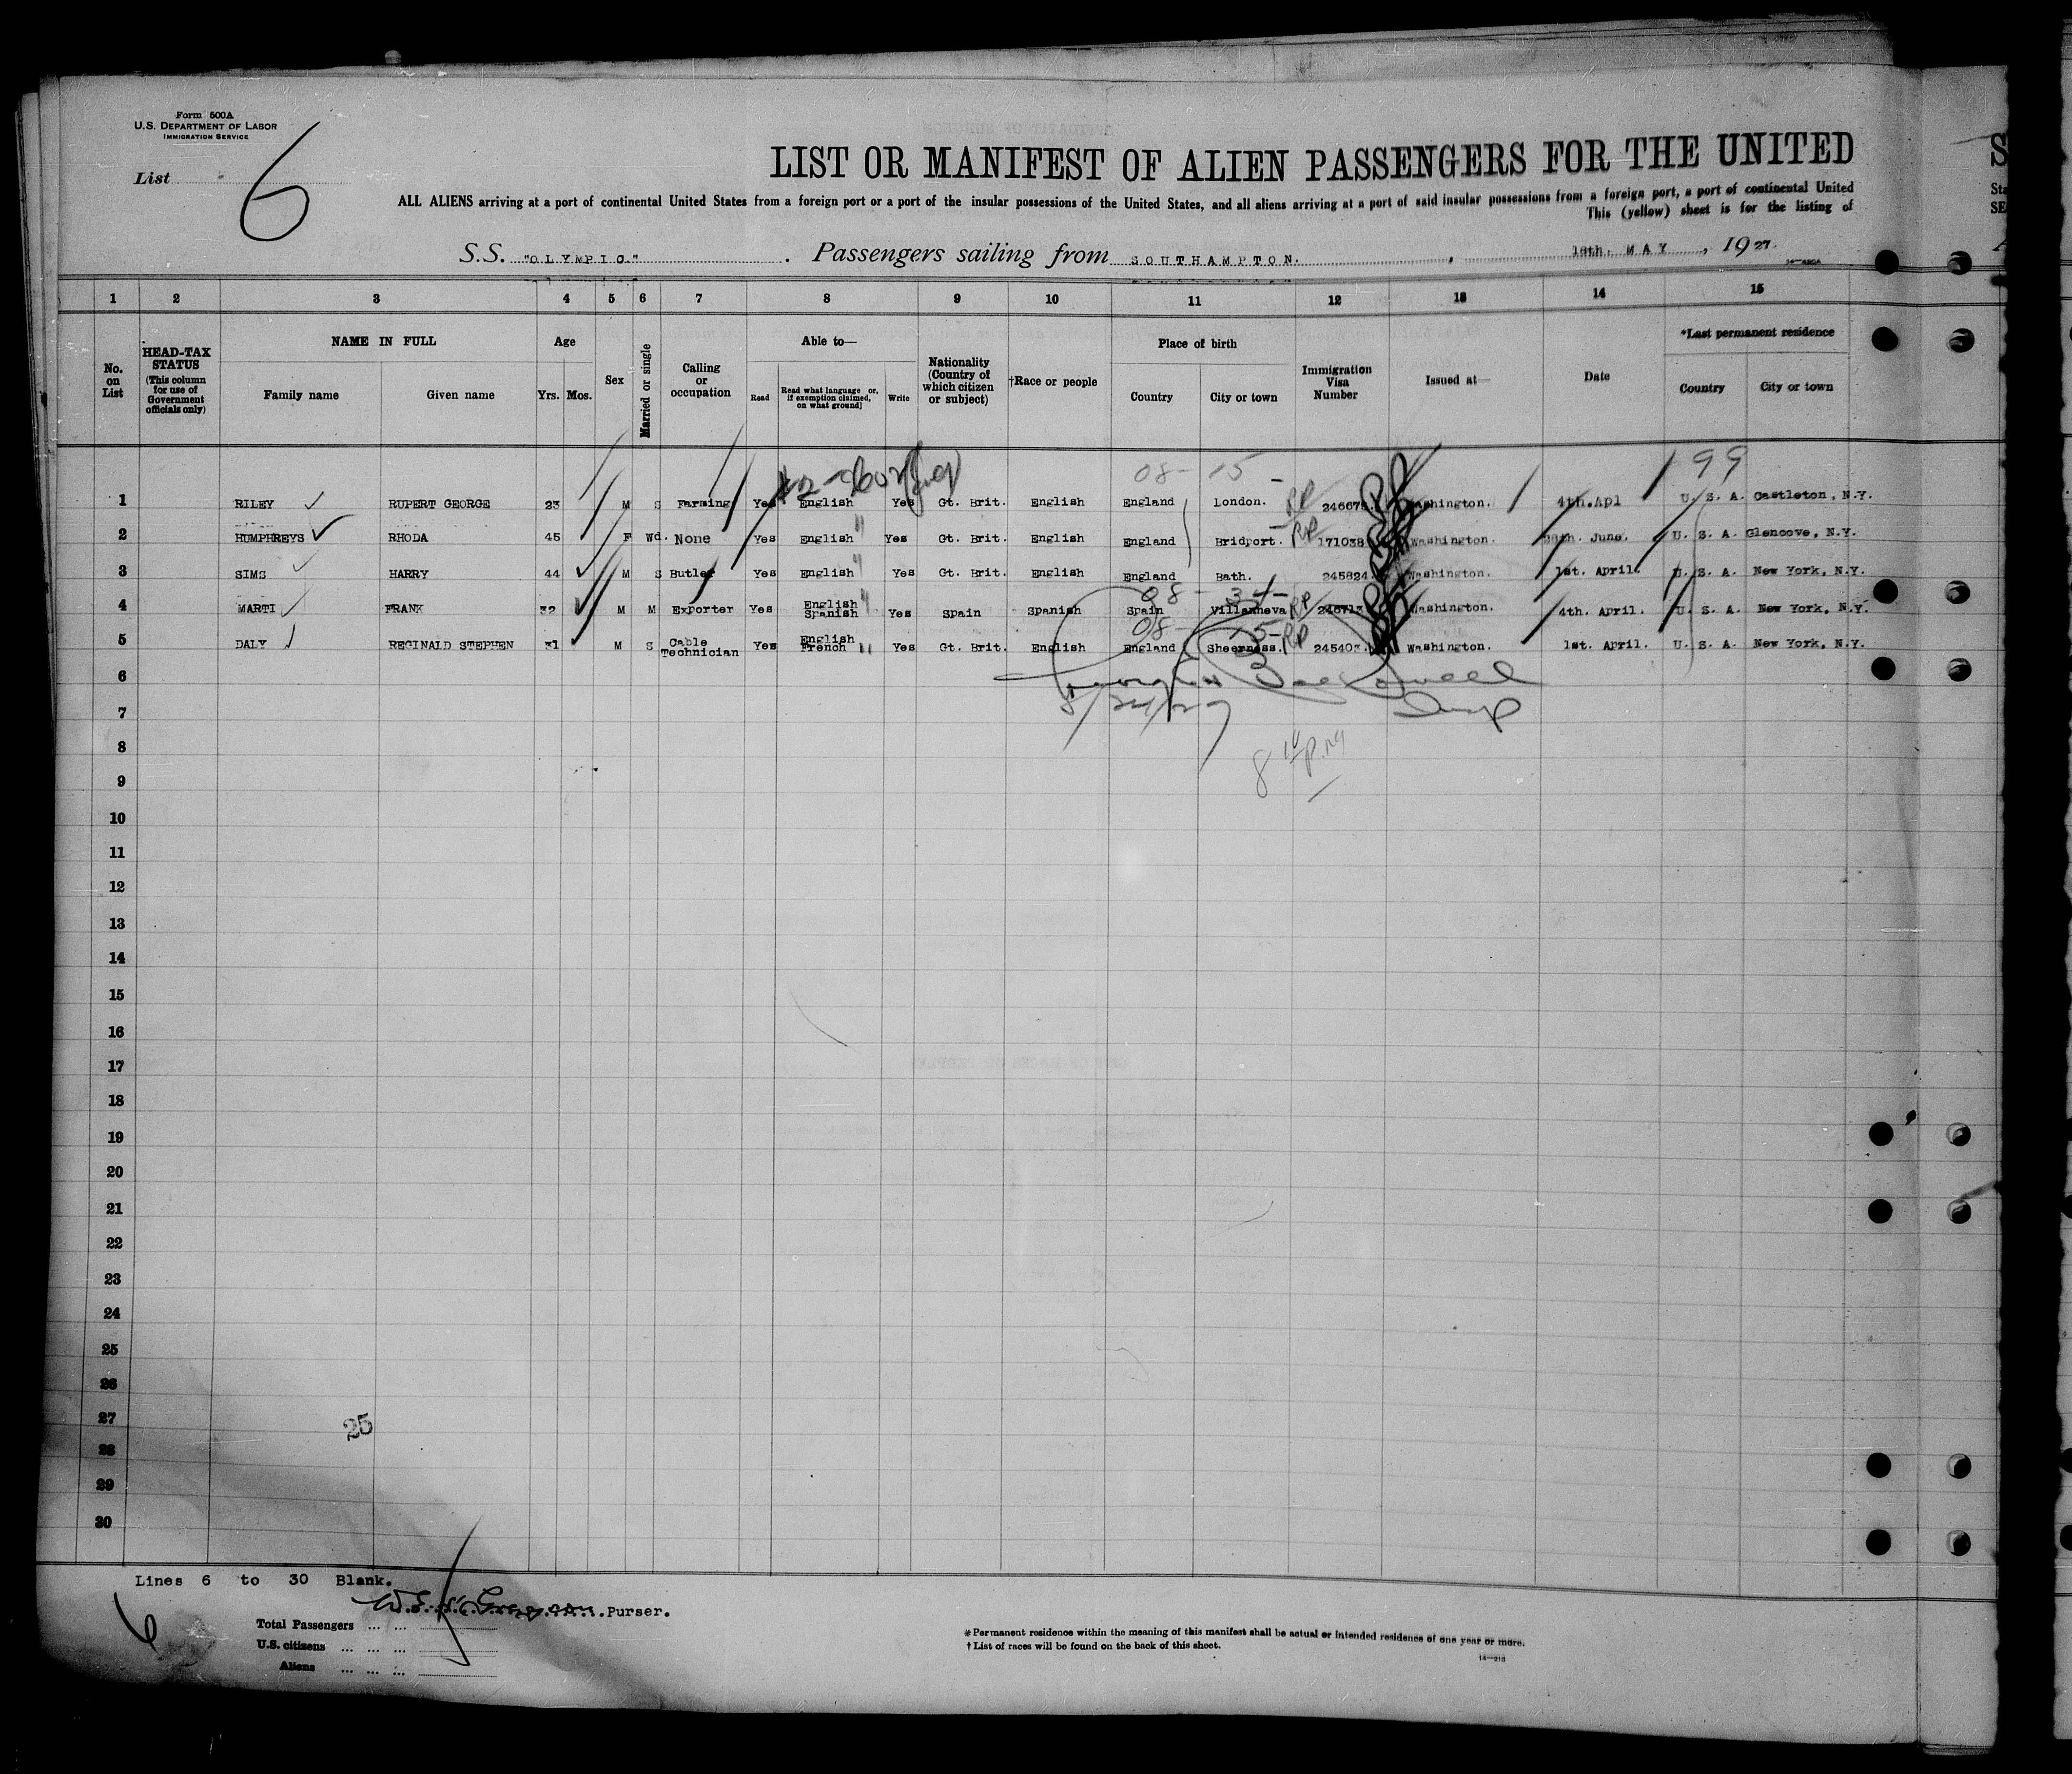 Form 500A
U.S. DEPARTMENT OF LABOR
IMMIGRATION SERVICE
List 6
LIST OR MANIFEST OF ALIEN PASSENGERS FOR THE UNITED
ALL ALIENS arriving at a port of continental United States from a foreign port or a port of the insular possessions of the United States, and all aliens arriving at a port of said insular possessions from a foreign port, a port of continental United
This (yellow) sheet is for the listing of
S.S. "OLYMPIC". Passengers sailing from SOUTHAMPTON. , 18th. MAY , 1927.
1 2 3 4 5 6 7 8 9 10 11 12 13 14 15
No. on List
HEAD-TAX STATUS (This column for use of Government officials only)
NAME IN FULL
Family name Given name
Age
Yrs. Mos.
Sex
Married or single
Calling or occupation
Able to—
Read Read what language or, if exemption claimed, on what ground] Write
Nationality (Country of which citizen or subject)
†Race or people
Place of birth
Country City or town
Immigration Visa Number
Issued at—
Date
*Last permanent residence
Country City or town
08- 15 199
1 RILEY RUPERT GEORGE 23 M S Farming Yes English Yes Gt. Brit. English England London. RP 24667 Washington. 4th.Apl U. S. A. Castleton, N.Y.
2 HUMPHREYS RHODA 45 F Wd. None Yes English " Yes Gt. Brit. English England Bridport. RP 171038 Washington. June. U. S. A. Glencove, N.Y.
3 SIMS HARRY 44 M S Butler Yes English " Yes Gt. Brit. English England Bath. 245824. Washington. 1st. April. U. S. A. New York, N.Y.
08- 34
4 MARTI FRANK 32 M M Exporter Yes English Spanish " Yes Spain Spanish Spain Villanneva RP Washington. 4th. April. U. S. A. New York, N.Y.
08- 15
5 DALY REGINALD STEPHEN 31 M S Cable Technician Yes English French " Yes Gt. Brit. English England Sheerness. RP 24540 Washington. 1st. April. U. S. A. New York, N.Y.
6
Insp
7
8
9
10
11
12
13
14
15
16
17
18
19
20
21
22
23
24
25
26
27
25
28
29
30
Lines 6 to 30 Blank.
Purser.
6
Total Passengers ... ...
U.S. citizens ... ... ...
Aliens ... ... ...
*Permanent residence within the meaning of this manifest shall be actual or intended residence of one year or more.
†List of races will be found on the back of this sheet.